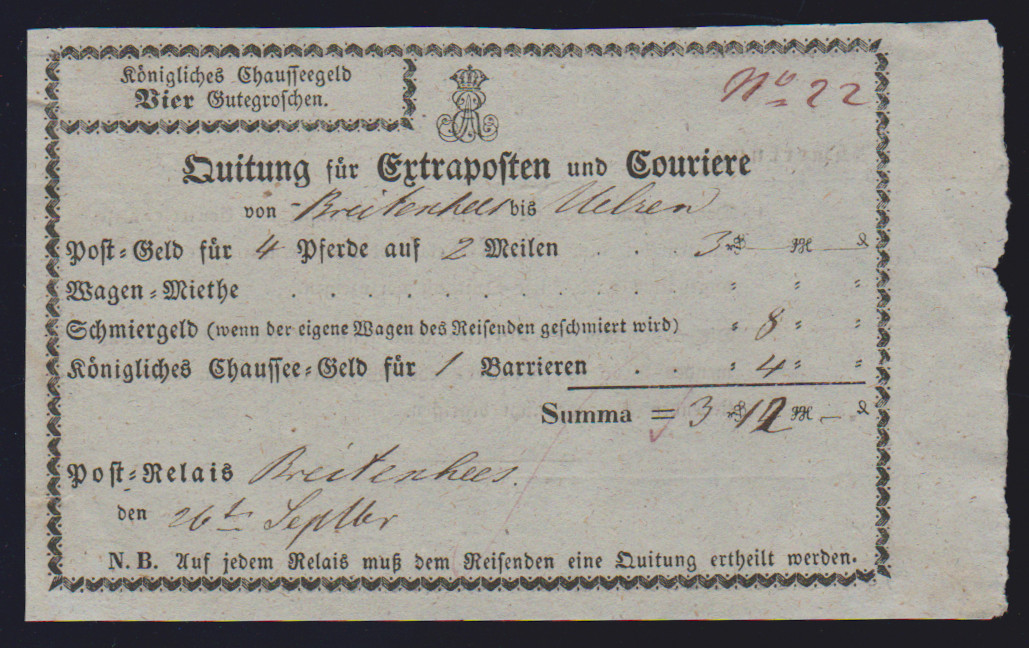 Königliches Chausseegeld
Vier Gutegroschen.
No 22
Quitung für Extraposten und Couriere
von Breitenhees bis Uelzen
Post-Geld für 4 Pferde auf 2 Meilen . . 3 — —
Wagen-Miethe . . . . . . . . . . " " "
Schmiergeld (wenn der eigene Wagen des Reisenden geschmiert wird) " 8 " "
Königliches Chaussee-Geld für 1 Barrieren . . " 4 " "
Summa = 3 12 —
Post-Relais Breitenhees.
den 26ts Septbr
N. B. Auf jedem Relais muß dem Reisenden eine Quitung ertheilt werden.